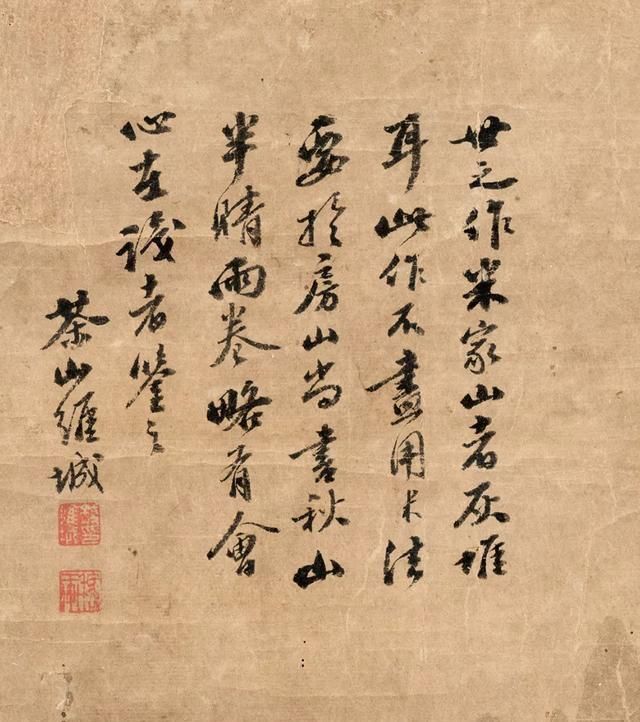 世之作米家山者灰堆
耳此作不盡用米法
要於房山尚書秋山
半晴雨卷略有會
心在識者鑒之
茶山維城